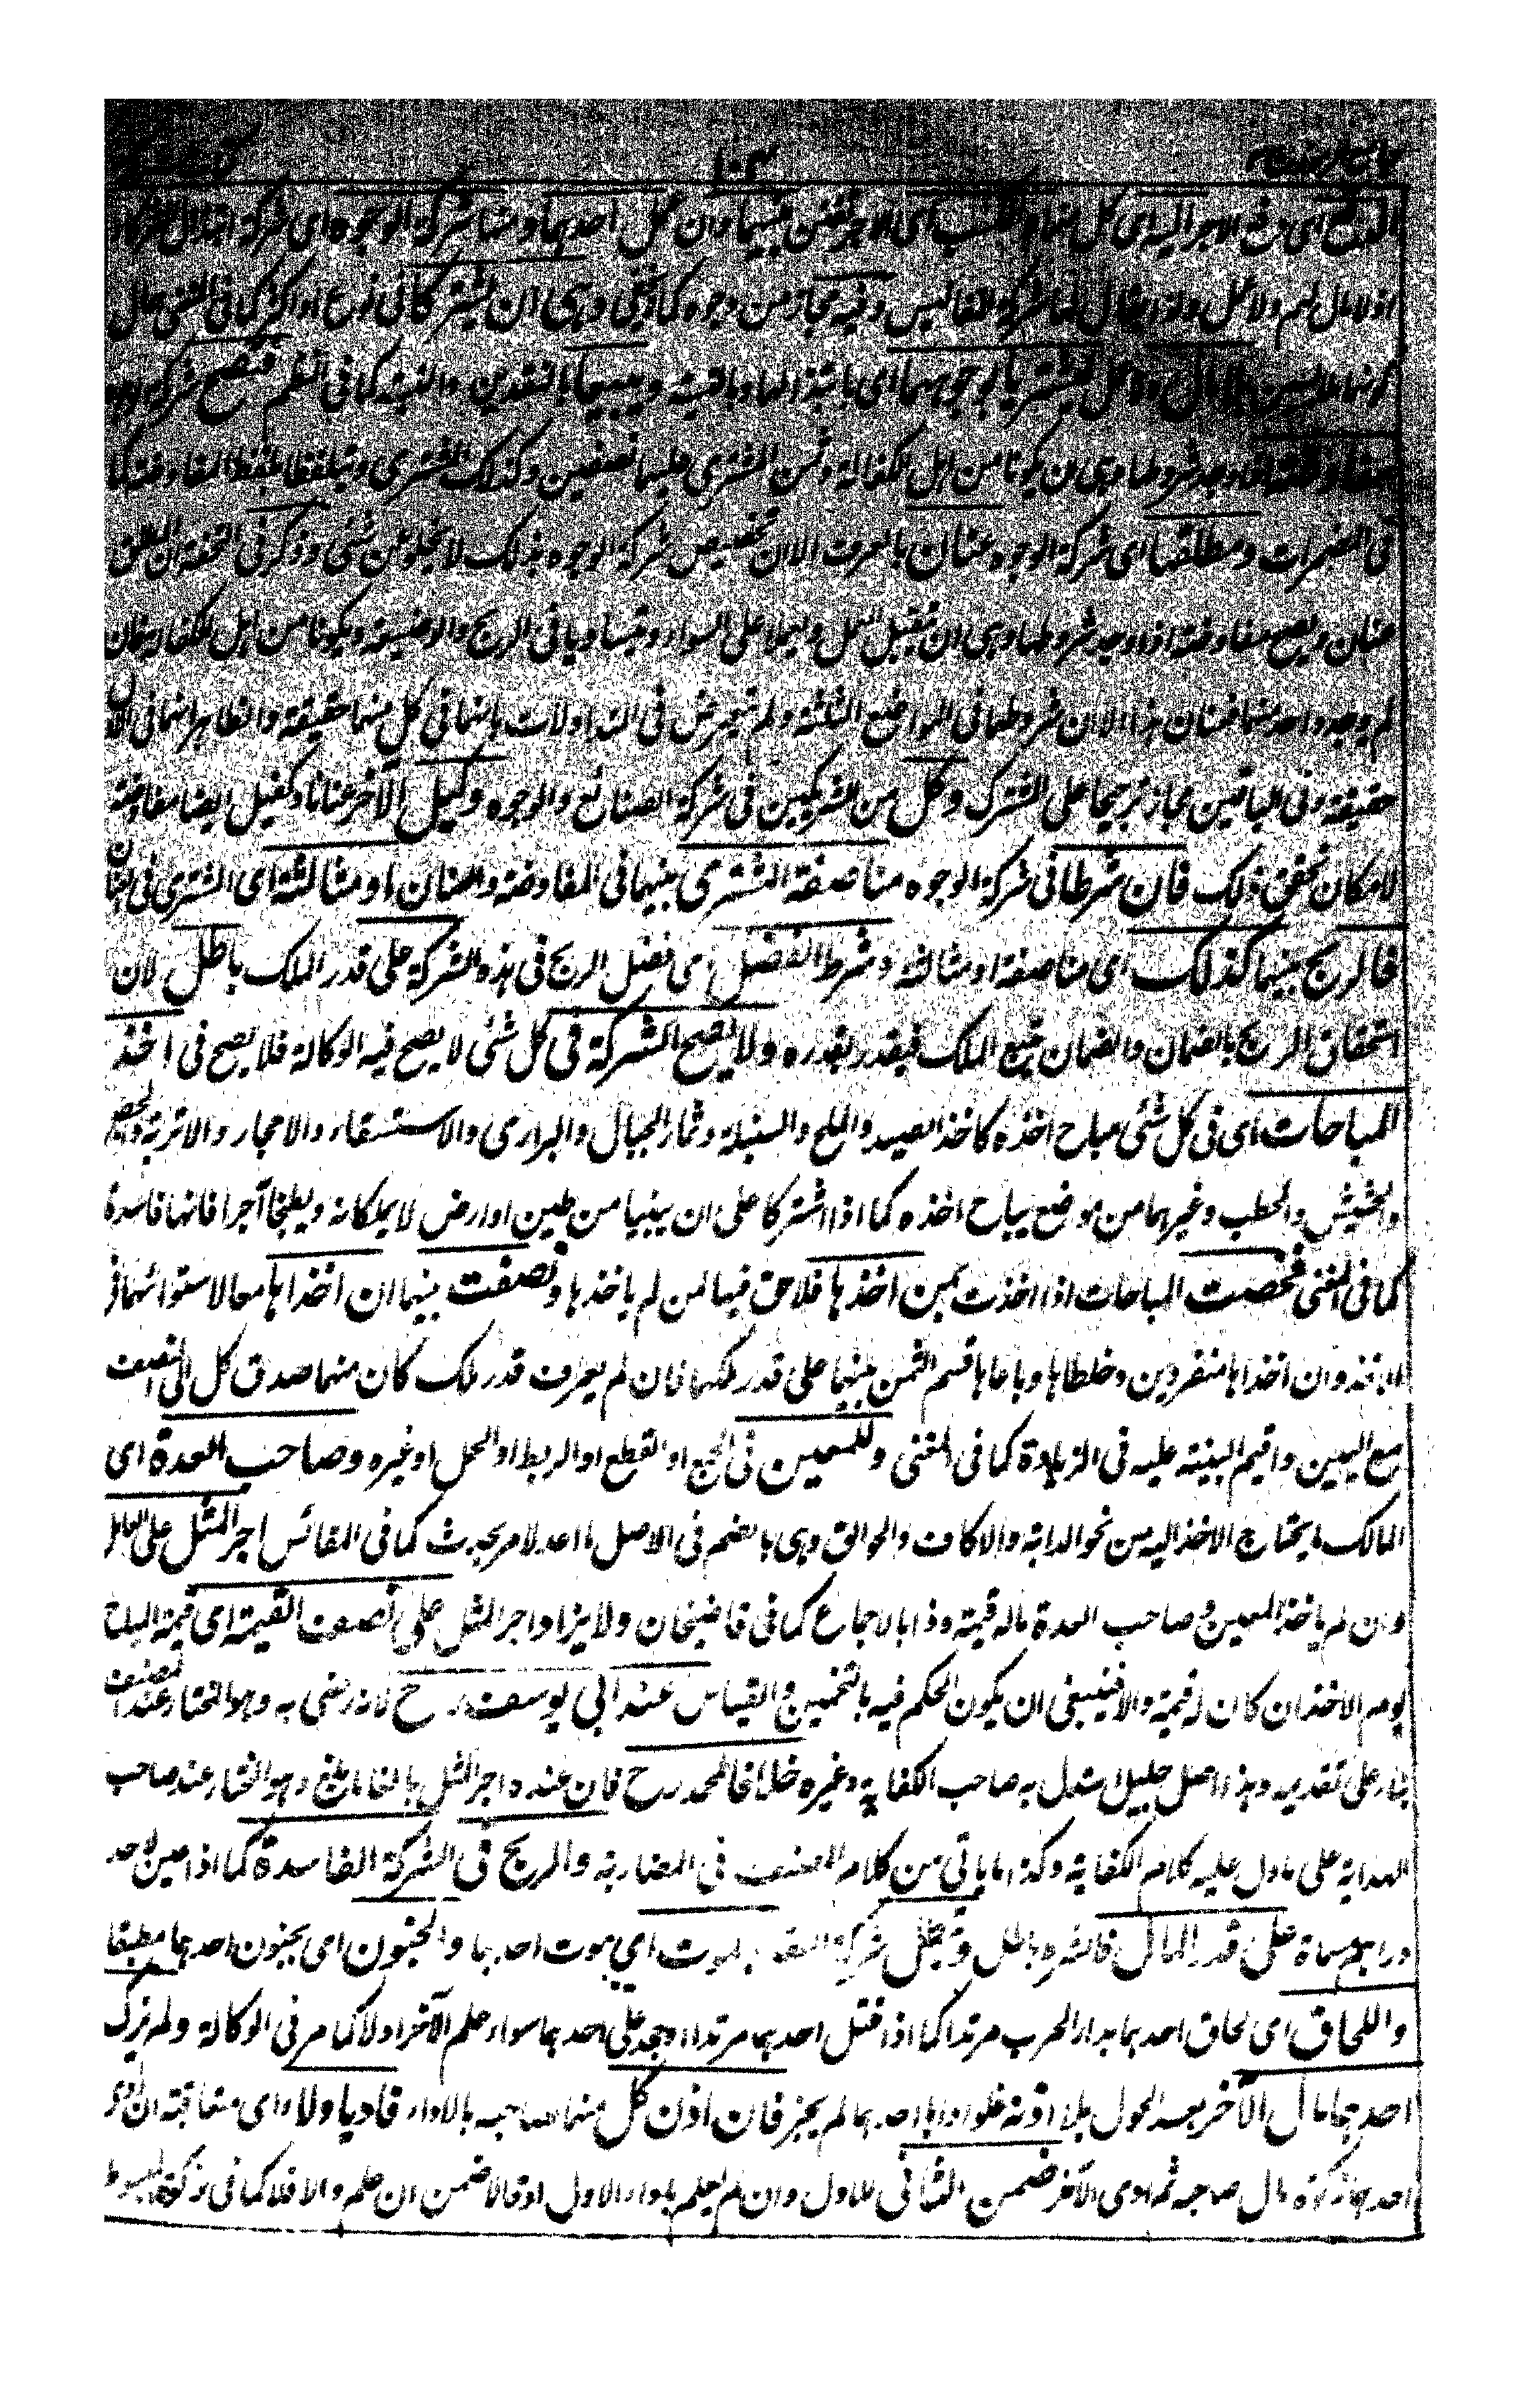 الدفع اى دفع الاجر اليه اى كل منهما والكسب اى الاجر بينهما وان عمل احدهما ومنها شركة الوجوه اى شركة
اذ لا مال لهم ولا عمل ولذا يقال لها شركة المفاليس وفيه مجاز من وجوه كما لا يخفى وهى ان يشتركا فى نوع او اكثر كما فى
بلا مال ولا عمل ليشتريا بوجوههما اى ويبيعا بالنقدين والنسية كما فى النظم فتصح شركة
مفاوضة اذا وجد شروطها وهى ان يكونا من اهل الكفالة وثمن المشترى عليهما نصفين وكذلك المشترى ويتلفظا بلفظ المفاوضة كما
فى المضمرات ومطلقها اى شركة الوجوه عنان بالعرف الا ان تخصيص شركة الوجوه بذلك لا يخلو عن شئى وذكر فى التحفة ان المطلق
عنان ويصح مفاوضة اذا وجد شروطها وهى ان يتقبل العمل وليعملا على السواء ويتساويا فى الربح والوضيعة ويكونا من اهل الكفالة فان
لم يوجد واحد منها فعنان هذا الا ان شروطها فى المواضع الثلثة ولم يتعرض فى المتداولات بانها فى كل منهما حقيقة والظاهر انها فى الاول
حقيقة وفى الباقيين مجاز ترجيحا على المشترك وكل من الشريكين فى شركة الصنائع والوجوه وكيل الآخر عنانا وكفيل ايضا مفاوضة
لامكان تحقق ذلك فان شرطا فى شركة الوجوه مناصفة المشترى بينهما فى المفاوضة والعنان او مثالثة اى المشترى فى العنان
فالربح بينهما كذلك اى مناصفة او مثالثة وشرط الفضل اى فضل الربح فى هذه الشركة على قدر الملك باطل لان
استحقاق الربح بالضمان والضمان يتبع الملك فيقدر بقدره ولا يصح الشركة فى كل شئى لا يصح فيه الوكالة فلا يصح فى اخذ
المباحات اى فى كل شئى مباح اخذه كاخذ الصيد والملح والسنبلة وثمار الجبال والبرارى والاستسقاء والاحجار والاتربة والجص
والحشيش والحطب وغيرهما من موضع يباح اخذه كما اذا اشتركا على ان يبنيا من طين او ارض لا يملكانه ويطبخا آجرا فانها فاسدة
كما فى المغنى فخصت المباحات اذا اخذت بمن اخذها فلاحق فيها لمن لم ياخذها ونصفت بينهما ان اخذاها معا لاستوائهما فى
الاخذ وان اخذاها منفردين وخلطاها وباعاها قسم الثمن بينهما على قدر ملكهما فان لم يعرف قدر ملك كان منهما صدق كل الى النصف
مع اليمين واقيم البينة عليه فى الزيادة كما فى المغنى وللمعين فى الجمع او القطع او الربط او الحمل او غيره وصاحب العدة اى
المالك ما يحتاج الاخذ اليه من نحو الدابة والاكاف والجوالق وهى بالضم فى الاصل ما اعد لامر يحدث كما فى المقائس اجر المثل على العامل
وان لم ياخذ المعين وصاحب العدة ماله قيمة وذا بالاجماع كما فى قاضيخان ولا يزاد اجر المثل على نصف القيمة اى قيمة المباح
يوم الاخذ ان كان له قيمة والا فينبغى ان يكون الحكم فيه بالتخمين والقياس عند ابى يوسف رح لانه رضى به وهو المختار عند المصنف
بناء على تقديمه وهذا اصل جليل استدل به صاحب الكفاية وغيره خلافا لمحمد رح فان عنده اجر المثل بالغا ما بلغ وهو المختار عند صاحب
الهداية على ما دل عليه كلام الكفاية وكذا ما ياتى من كلام المصنف فى المضاربة والربح فى الشركة الفاسدة كما اذا عين لاحد
دراهم مسماة على قدر المال فالشرط باطل وتبطل شركة العقد بالموت اى بموت احدهما والجنون اى بجنون احدهما مطبقا
واللحاق اى لحاق احدهما بدار الحرب مرتدا كما اذا قتل احدهما مرتدا او حجر على احدهما سواء علم الآخر او لا كما مر فى الوكالة ولم يزك
احدهما مال الآخر بعد الحول بلا اذنه فلو اداها احدهما لم يجز فان اذن كل منهما صاحبه بالاداء فاديا ولاء اى متعاقبة ان ادى
احدهما زكوة مال صاحبه ثم ادى الآخر ضمن الثانى للاول وان لم يعلم باداء الاول او قالا ضمن ان علم والا فلا كما فى زكوة المبسوط